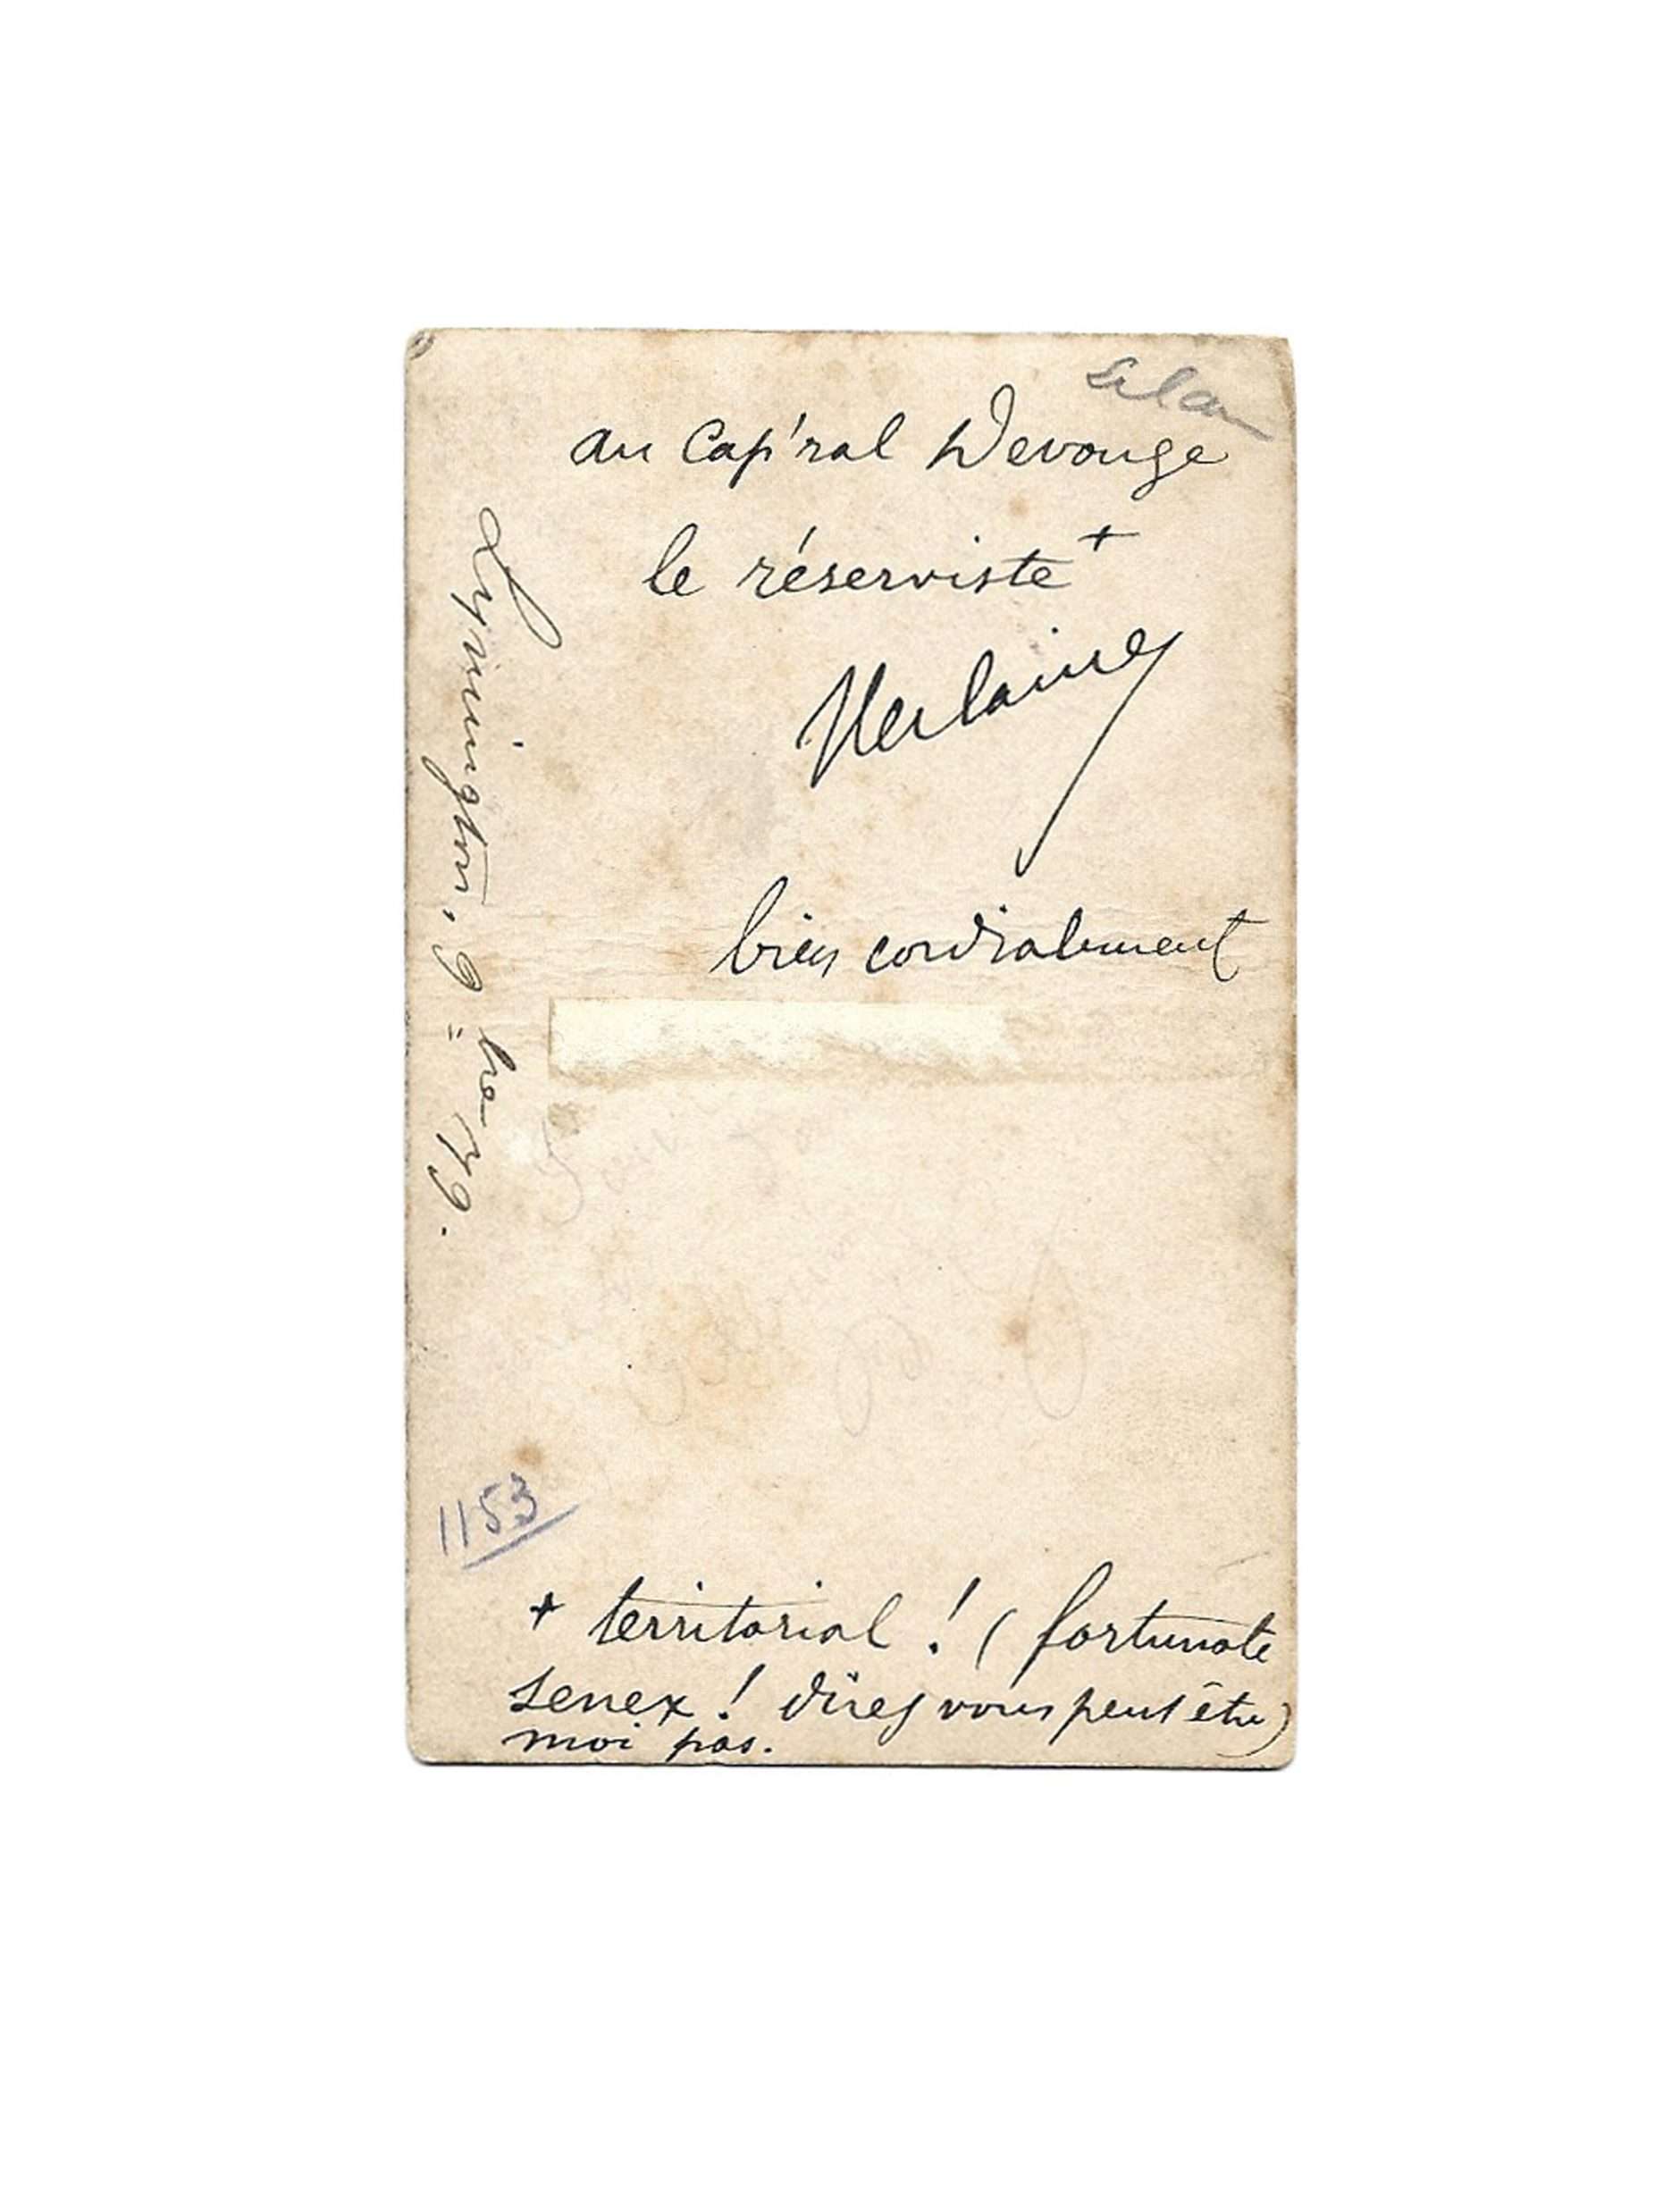 au Cap'ral Devouge
le réserviste +
Verlaine
bien cordialement
Lymington, 9bre 79.
1153
+ territorial ! ( fortunate
senex ! direz vous peut être )
moi pas.